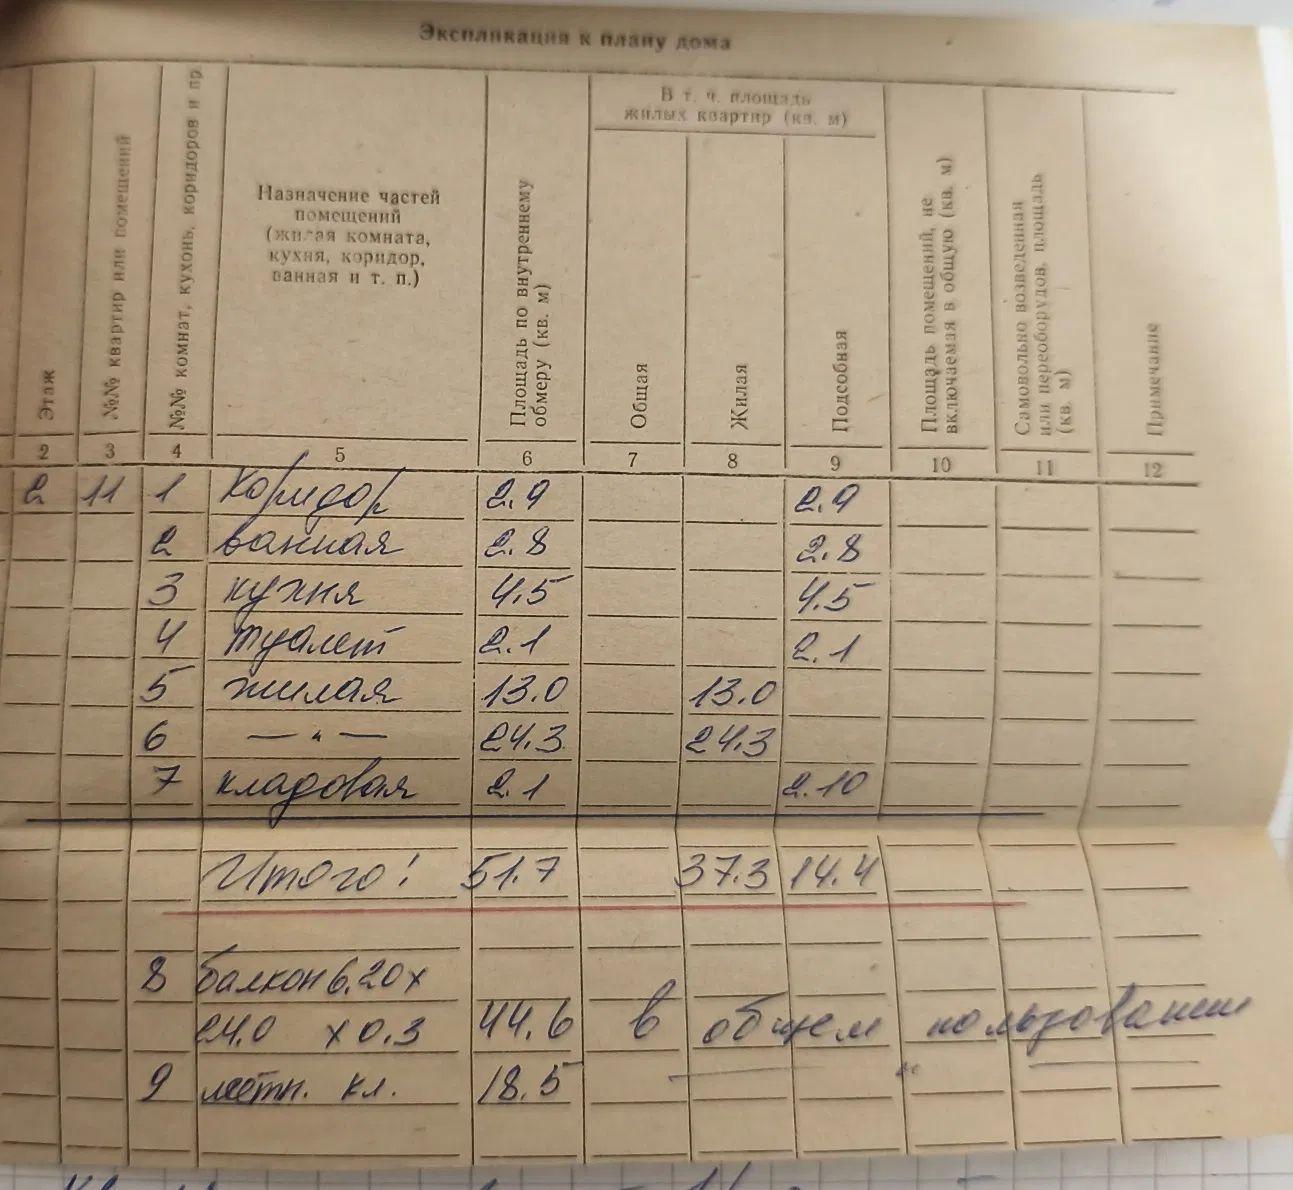 Экспликация к плану дома
Этаж
№№ квартир или помещений
№№ комнат, кухонь, коридоров и пр.
Назначение частей
помещений
(жилая комната,
кухня, коридор,
ванная и т. п.)
Площадь по внутреннему
обмеру (кв. м)
В т. ч. площадь
жилых квартир (кв. м)
Общая
Жилая
Подсобная
Площадь помещений, не
включаемая в общую (кв. м)
Самовольно возведенная
или переоборудов. площадь
(кв. м)
Примечание
2 3 4 5 6 7 8 9 10 11 12
2 11 1 Коридор 2.9 2.9
2 ванная 2.8 2.8
3 кухня 4.5 4.5
4 туалет 2.1 2.1
5 жилая 13.0 13.0
6 — " — 24.3 24.3
7 кладовая 2.1 2.10
Итого! 51.7 37.3 14.4
8 балкон 6.20 х
24.0 х 0.3 44.6 в общем пользовании
9 лестн. кл. 18.5 — " —